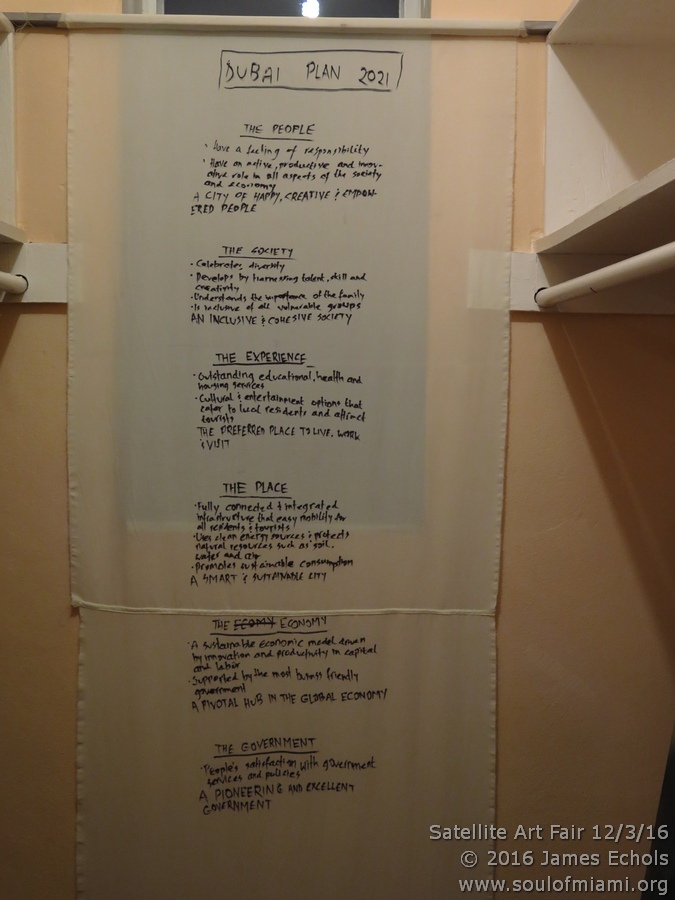 DUBAI PLAN 2021
THE PEOPLE
· Have a feeling of responsibility
· Have an active, productive and innov-
ative role in all aspects of the society
and economy
A CITY OF HAPPY, CREATIVE & EMPOW-
ERED PEOPLE
THE SOCIETY
· Celebrates diversity
· Develops by harnessing talent, skill and
creativity
· Understands the importance of the family
· Is inclusive of all vulnerable groups
AN INCLUSIVE & COHESIVE SOCIETY
THE EXPERIENCE
· Outstanding educational, health and
housing services
· Cultural & entertainment options that
cater to local residents and attract
tourists
THE PREFERRED PLACE TO LIVE, WORK
& VISIT
THE PLACE
· Fully connected & integrated
infrastructure that easy mobility for
all residents & tourists
· Uses clean energy sources & protects
natural resources such as soil,
water and air
· Promotes sustainable consumption
A SMART & SUSTAINABLE CITY
THE ECONOMY
· A sustainable economic model driven
by innovation and productivity in capital
and labor
· Supported by the most friendly
government
A PIVOTAL HUB IN THE GLOBAL ECONOMY
THE GOVERNMENT
· People's satisfaction with government
services and policies
A PIONEERING AND EXCELLENT
GOVERNMENT
Satellite Art Fair 12/3/16
© 2016 James Echols
www.soulofmiami.org